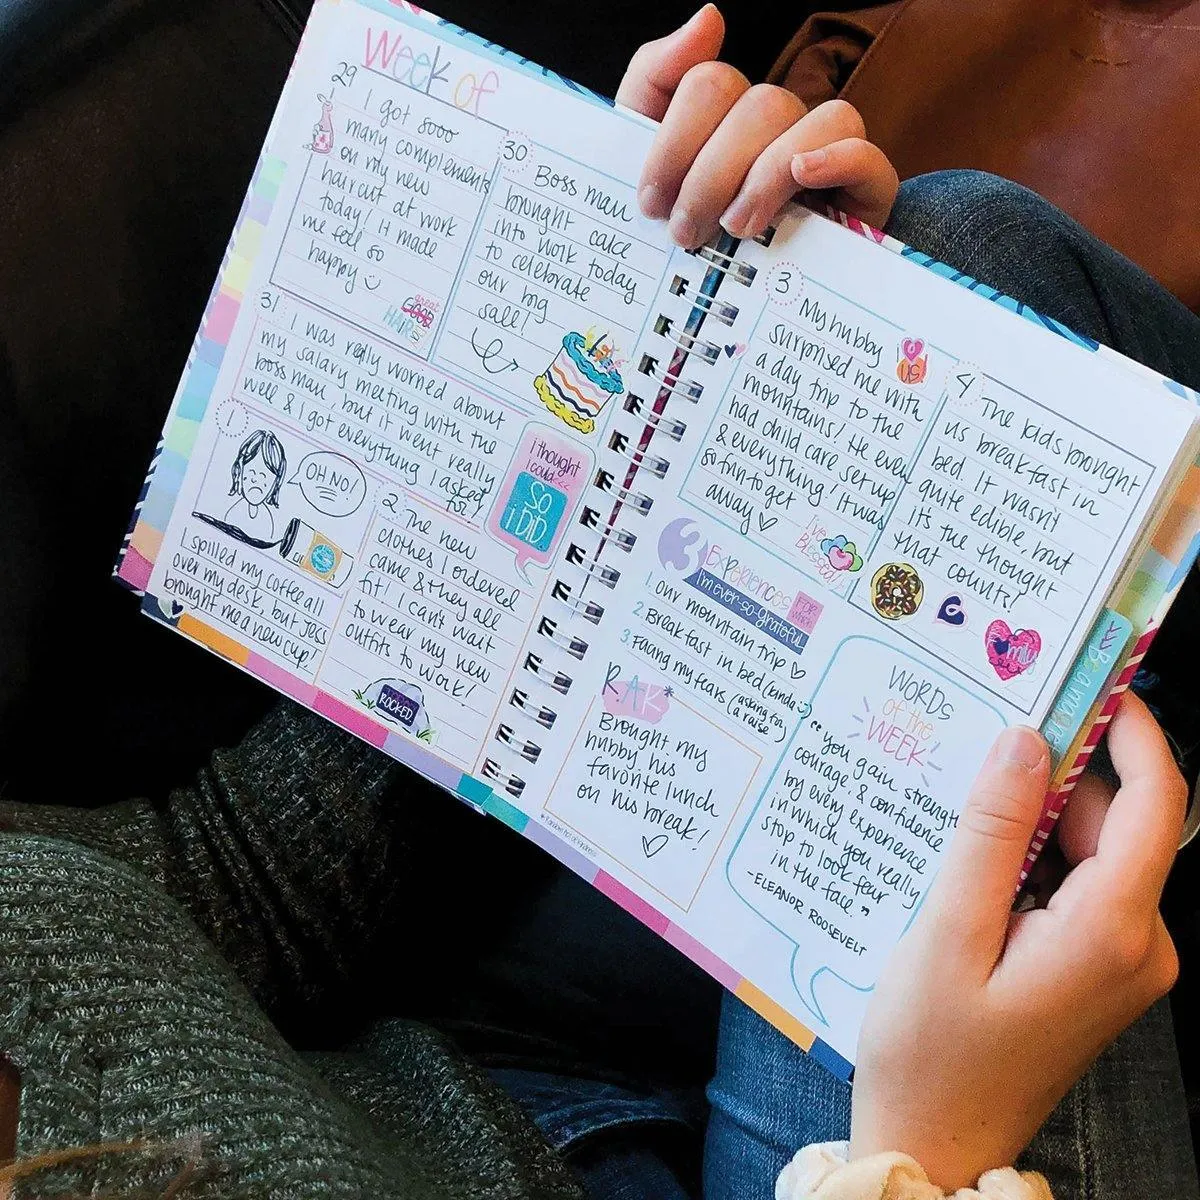 Week of
29
I got sooo
many complements
on my new
haircut at work
today! It made
me feel so
happy
great
GOOD
HAIR
30
Boss man
brought cake
into work today
to celebrate
our big
sale!
31
I was really worried about
my salary meeting with the
boss man, but it went really
well & I got everything I asked
for!
i thought
i could...
SO
i DID.
1
OH NO!
I spilled my coffee all
over my desk, but Jess
brought me a new cup!
2
The new
clothes I ordered
came & they all
fit! I can't wait
to wear my new
outfits to work!
ROCKED
3
My hubby
surprised me with
a day trip to the
mountains! He even
had child care set up
& everything! It was
so fun to get
away
US!
Blessed!
4
The kids brought
us breakfast in
bed. It wasn't
quite edible, but
it's the thought
that counts!
family
3
EXPERiENCES
FOR
which
I'm ever-so-grateful...
1. our mountain trip
2. Breakfast in bed (kinda)
3. Facing my fears (asking for
a raise)
R.A.K*
Brought my
hubby his
favorite lunch
on his break!
*Random Act of Kindness
WORDS
of the
WEEK
"you gain strength
courage, & confidence
by every experience
in which you really
stop to look fear
in the face."
-ELEANOR ROOSEVELT